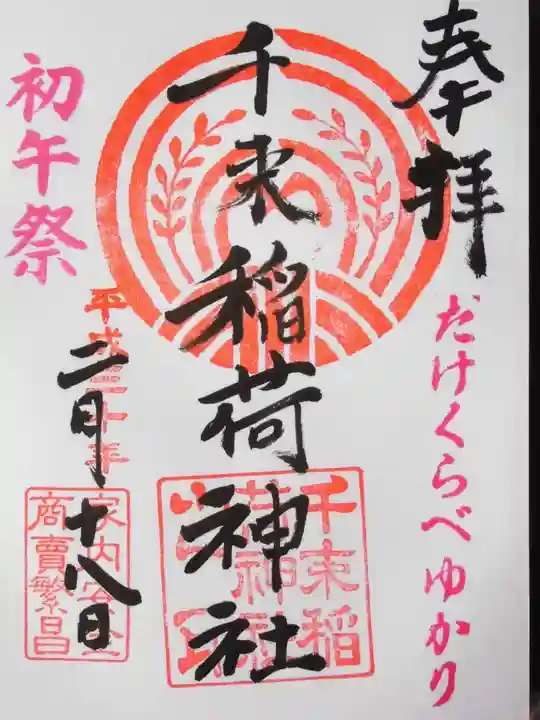 奉拝
だけくらべゆかり
千束稲荷神社
千束稲
荷神社
初午祭
平成三十年
二月十八日
家内安全
商賣繁昌